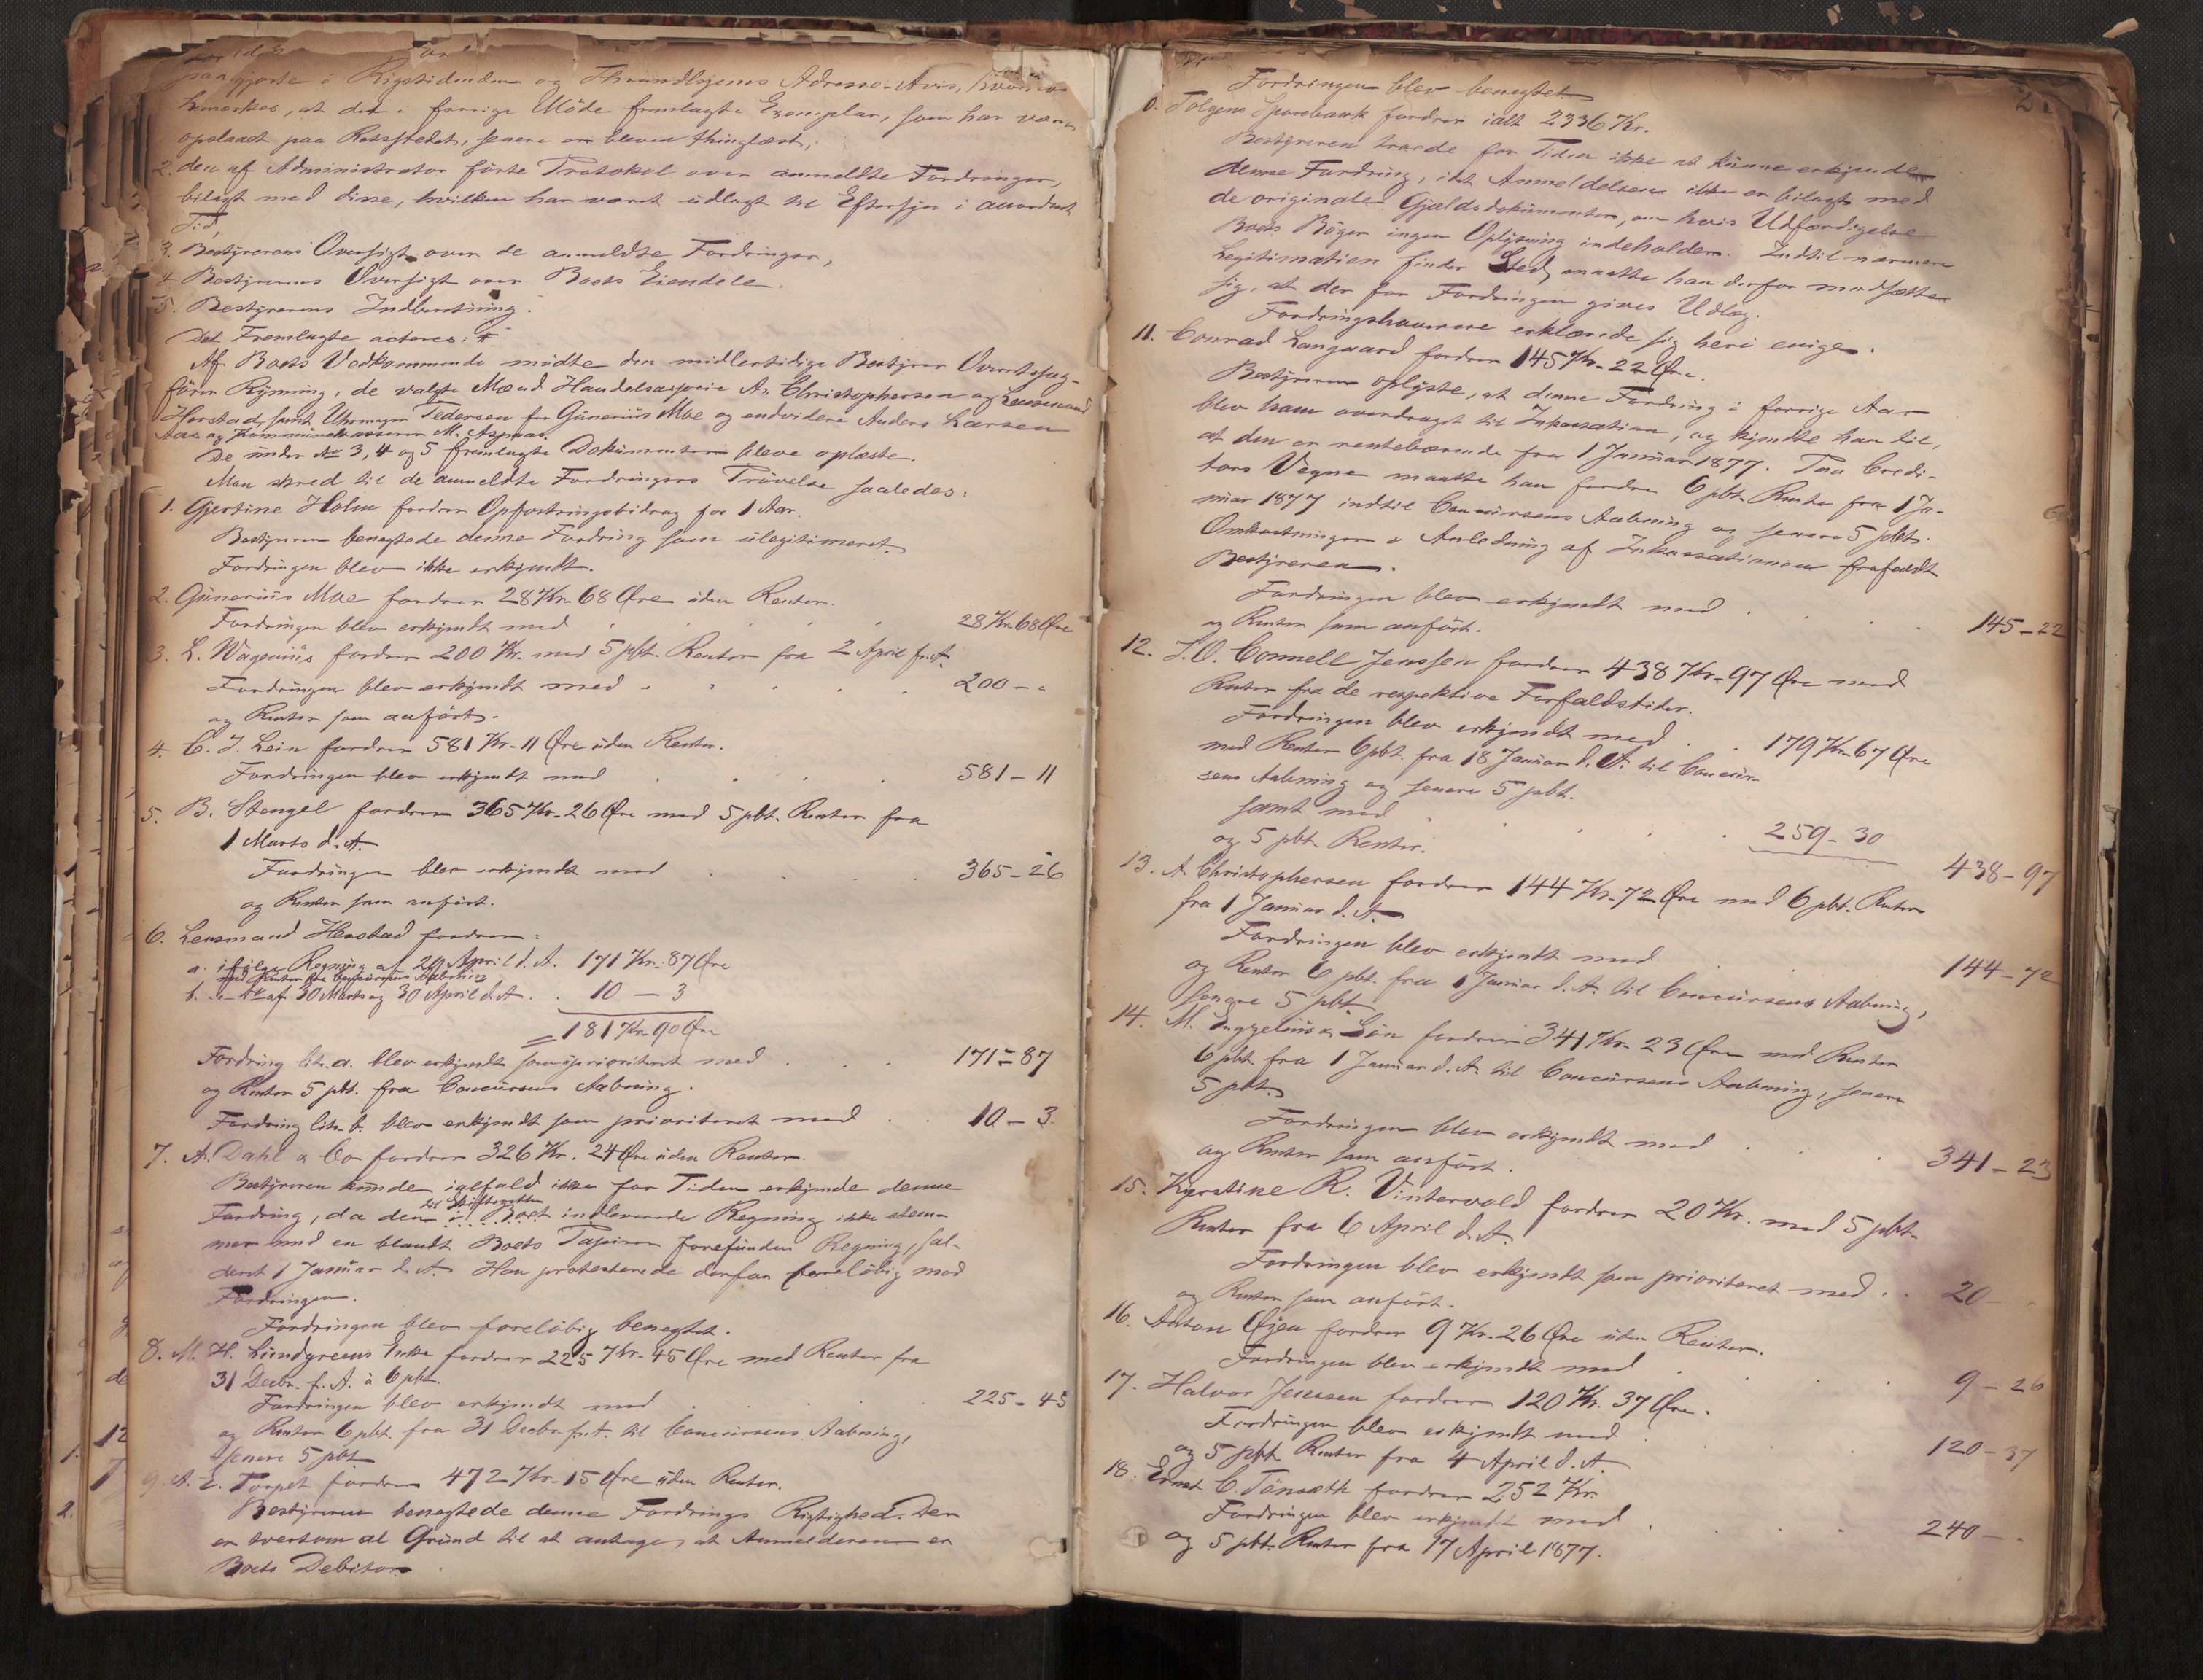 paagjorte i Rigstidenden og Throndhjems Adresse-Avis,
bemærkes, at det i forrige Møde fremlagte Exemplar, som har været
opslaaet paa Retsstedet, senere er bleven thinglæst,
2. den af Administrator førte Protokol over anmeldte Fordringer,
bilagt med disse, hvilken har været udlagt til Eftersyn i anordnet
Tid,
3. Bestyrerens Oversigt over de anmeldte Fordringer,
4. Bestyrerens Oversigt over Boets Eiendele.
5. Bestyrerens Indberetning.
Det Fremlagte acteres:
Af Boets Vedkommende mødte den midlertidige Bestyrer Overretssag-
fører Ryning, de valgte Mænd Handelsexpeditør A. Christophersen og Lensmand
Herstad, samt Uhrmager Pedersen for Gunerius Moe og endvidere Anders Larsen
Aas og Kommunekasserer M. Aspaas.
De under No 3, 4 og 5 fremlagte Dokumenter bleve oplæste.
Man skred til de anmeldte Fordringers Prøvelse saaledes:
1. Gjertine Holm fordrer Opfostringsbidrag for 1 Aar.
Bestyreren benegtede denne Fordring som ulegitimeret.
Fordringen blev ikke erkjendt.
2. Gunerius Moe fordrer 28 Kr. 68 Øre uden Renter.
Fordringen blev erkjendt med . . . . 28 Kr. 68 Øre
3. L. Wagenius fordrer 200 Kr. med 5 pCt. Renter fra 2 April f. A.
Fordringen blev erkjendt med . . . . 200 - "
og Renter som anført.
4. C. J. Lein fordrer 581 Kr. 11 Øre uden Renter.
Fordringen blev erkjendt med . . . . 581 - 11
5. B. Stengel fordrer 365 Kr. 26 Øre med 5 pCt. Renter fra
1 Marts d. A.
Fordringen blev erkjendt med . . . . 365 - 26
og Renter som anført.
6. Lensmand Herstad fordrer:
a. ifølge Regning af 29 April d. A. 171 Kr. 87 Øre
med Renter fra Concursens Aabning
b. -"- Do af 30 Marts og 30 April d. A. . 10 - 3
= 181 Kr. 90 Øre
Fordring litr. a. blev erkjendt som uprioriteret med . . . 171 - 87
og Renter 5 pCt. fra Concursens Aabning.
Fordring litr. b. blev erkjendt som prioriteret med . . 10 - 3
7. A. Dahl & Co fordrer 326 Kr. 24 Øre uden Renter.
Bestyreren kunde ialfald ikke for Tiden erkjende denne
til Skifteretten
Fordring, da den i Boet indleverede Regning ikke stem-
mer med en blandt Boets Papirer forefunden Regning, sal-
deret 1 Januar d. A. Han protesterede derfor foreløbig mod
Fordringen.
Fordringen blev foreløbig benegtet.
8. M. H. Lundgreens Enke fordrer 225 Kr. 45 Øre med Renter fra
31 Decbr. f. A. à 6 pCt.
Fordringen blev erkjendt med . . . . 225 - 45
og Renter 6 pCt. fra 31 Decbr. f. A. til Concursens Aabning,
senere 5 pCt.
9. A. E. Torpet fordrer 472 Kr. 15 Øre uden Renter.
Bestyreren benegtede denne Fordrings Rigtighed. Der
er tvertom al Grund til at antage, at Anmelderen er
Boets Debitor.
Fordringen blev benegtet.
Tolgens Sparebank fordrer ialt 2336 Kr.
Bestyreren troede for Tiden ikke at kunne erkjende
denne Fordring, idet Anmeldelsen ikke er bilagt med
de originale Gjældsdokumenter, om hvis Udfærdigelse
Boets Bøger ingen Oplysning indeholder. Indtil nærmere
Legitimation finder Sted, maatte han derfor modsætte
sig, at der for Fordringen gives Udlæg.
Fordringshaverne erklærede sig heri enige.
11. Conrad Langaard fordrer 145 Kr. 22 Øre.
Bestyreren oplyste, at denne Fordring i forrige Aar
blev ham overdraget til Inkassation, og kjendte han til,
at den er rentebærende fra 1 Januar 1877. Paa Credi-
tors Vegne maatte han fordre 6 pCt. Rente fra 1 Ja-
nuar 1877 indtil Concursens Aabning og senere 5 pCt.
Omkostninger i Anledning af Inkassationen frafaldt
Bestyreren.
Fordringen blev erkjendt med . . . . 145 - 22
og Renter som anført.
12. J. O. Connell Jenssen fordrer 438 Kr. 97 Øre med
Renter fra de respektive Forfaldstider.
Fordringen blev erkjendt med . . 179 Kr. 67 Øre
med Renter 6 pCt. fra 18 Januar d. A. til Concur-
sens Aabning og senere 5 pCt.
samt med . . . . 259 - 30
og 5 pCt. Renter. 438 - 97
13. A. Christophersen fordrer 144 Kr. 72 Øre med 6 pCt. Renter
fra 1 Januar d. A.
Fordringen blev erkjendt med . . . 144 - 72
og Renter 6 pCt. fra 1 Januar d. A. til Concursens Aabning,
senere 5 pCt.
14. M. Enggelius & Søn fordrer 341 Kr. 23 Øre med Renter
6 pCt. fra 1 Januar d. A. til Concursens Aabning, senere
5 pCt.
Fordringen blev erkjendt med . . . 341 - 23
og Renter som anført.
15. Kjerstine R. Vintervold fordrer 20 Kr. med 5 pCt.
Renter fra 6 April d. A.
Fordringen blev erkjendt som prioriteret med . . 20 -
og Renter som anført.
16. Anton Øien fordrer 9 Kr. 26 Øre uden Renter.
Fordringen blev erkjendt med . . . 9 - 26
17. Halvor Jenssen fordrer 120 Kr. 37 Øre.
Fordringen blev erkjendt med . . . 120 - 37
og 5 pCt. Renter fra 4 April d. A.
18. Ernst C. Tønseth fordrer 252 Kr.
Fordringen blev erkjendt med . . . 240 -
og 5 pCt. Renter fra 17 April 1877.